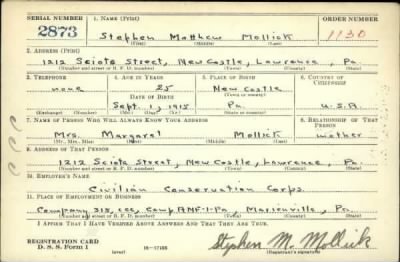 SERIAL NUMBER 1. NAME (Print) ORDER NUMBER
2873 Stephen Matthew Mollick 1130
(First) (Middle) (Last)
2. ADDRESS (Print)
1212 Sciota Street, New Castle, Lawrence, Pa.
(Number and street or R. F. D. number) (Town) (County) (State)
3. TELEPHONE 4. AGE IN YEARS 5. PLACE OF BIRTH 6. COUNTRY OF CITIZENSHIP
none 25 New Castle
DATE OF BIRTH (Town or county)
Sept. 1, 1915 Pa. U.S.A.
(Exchange) (Number) (Mo.) (Day) (Yr.) (State or country)
7. NAME OF PERSON WHO WILL ALWAYS KNOW YOUR ADDRESS 8. RELATIONSHIP OF THAT PERSON
Mrs. Margaret Mollick mother
(Mr., Mrs., Miss) (First) (Middle) (Last)
9. ADDRESS OF THAT PERSON
1212 Sciota Street, New Castle, Lawrence, Pa.
(Number and street or R. F. D. number) (Town) (County) (State)
10. EMPLOYER'S NAME
Civilian Conservation Corps.
11. PLACE OF EMPLOYMENT OR BUSINESS
Company 318, CCC, Camp ANF-1-Pa, Marienville, Pa.
(Number and street or R. F. D. number) (Town) (County) (State)
I AFFIRM THAT I HAVE VERIFIED ABOVE ANSWERS AND THAT THEY ARE TRUE.
REGISTRATION CARD
D. S. S. Form 1 (over) 16-17105 Stephen M. Mollick
(Registrant's signature)